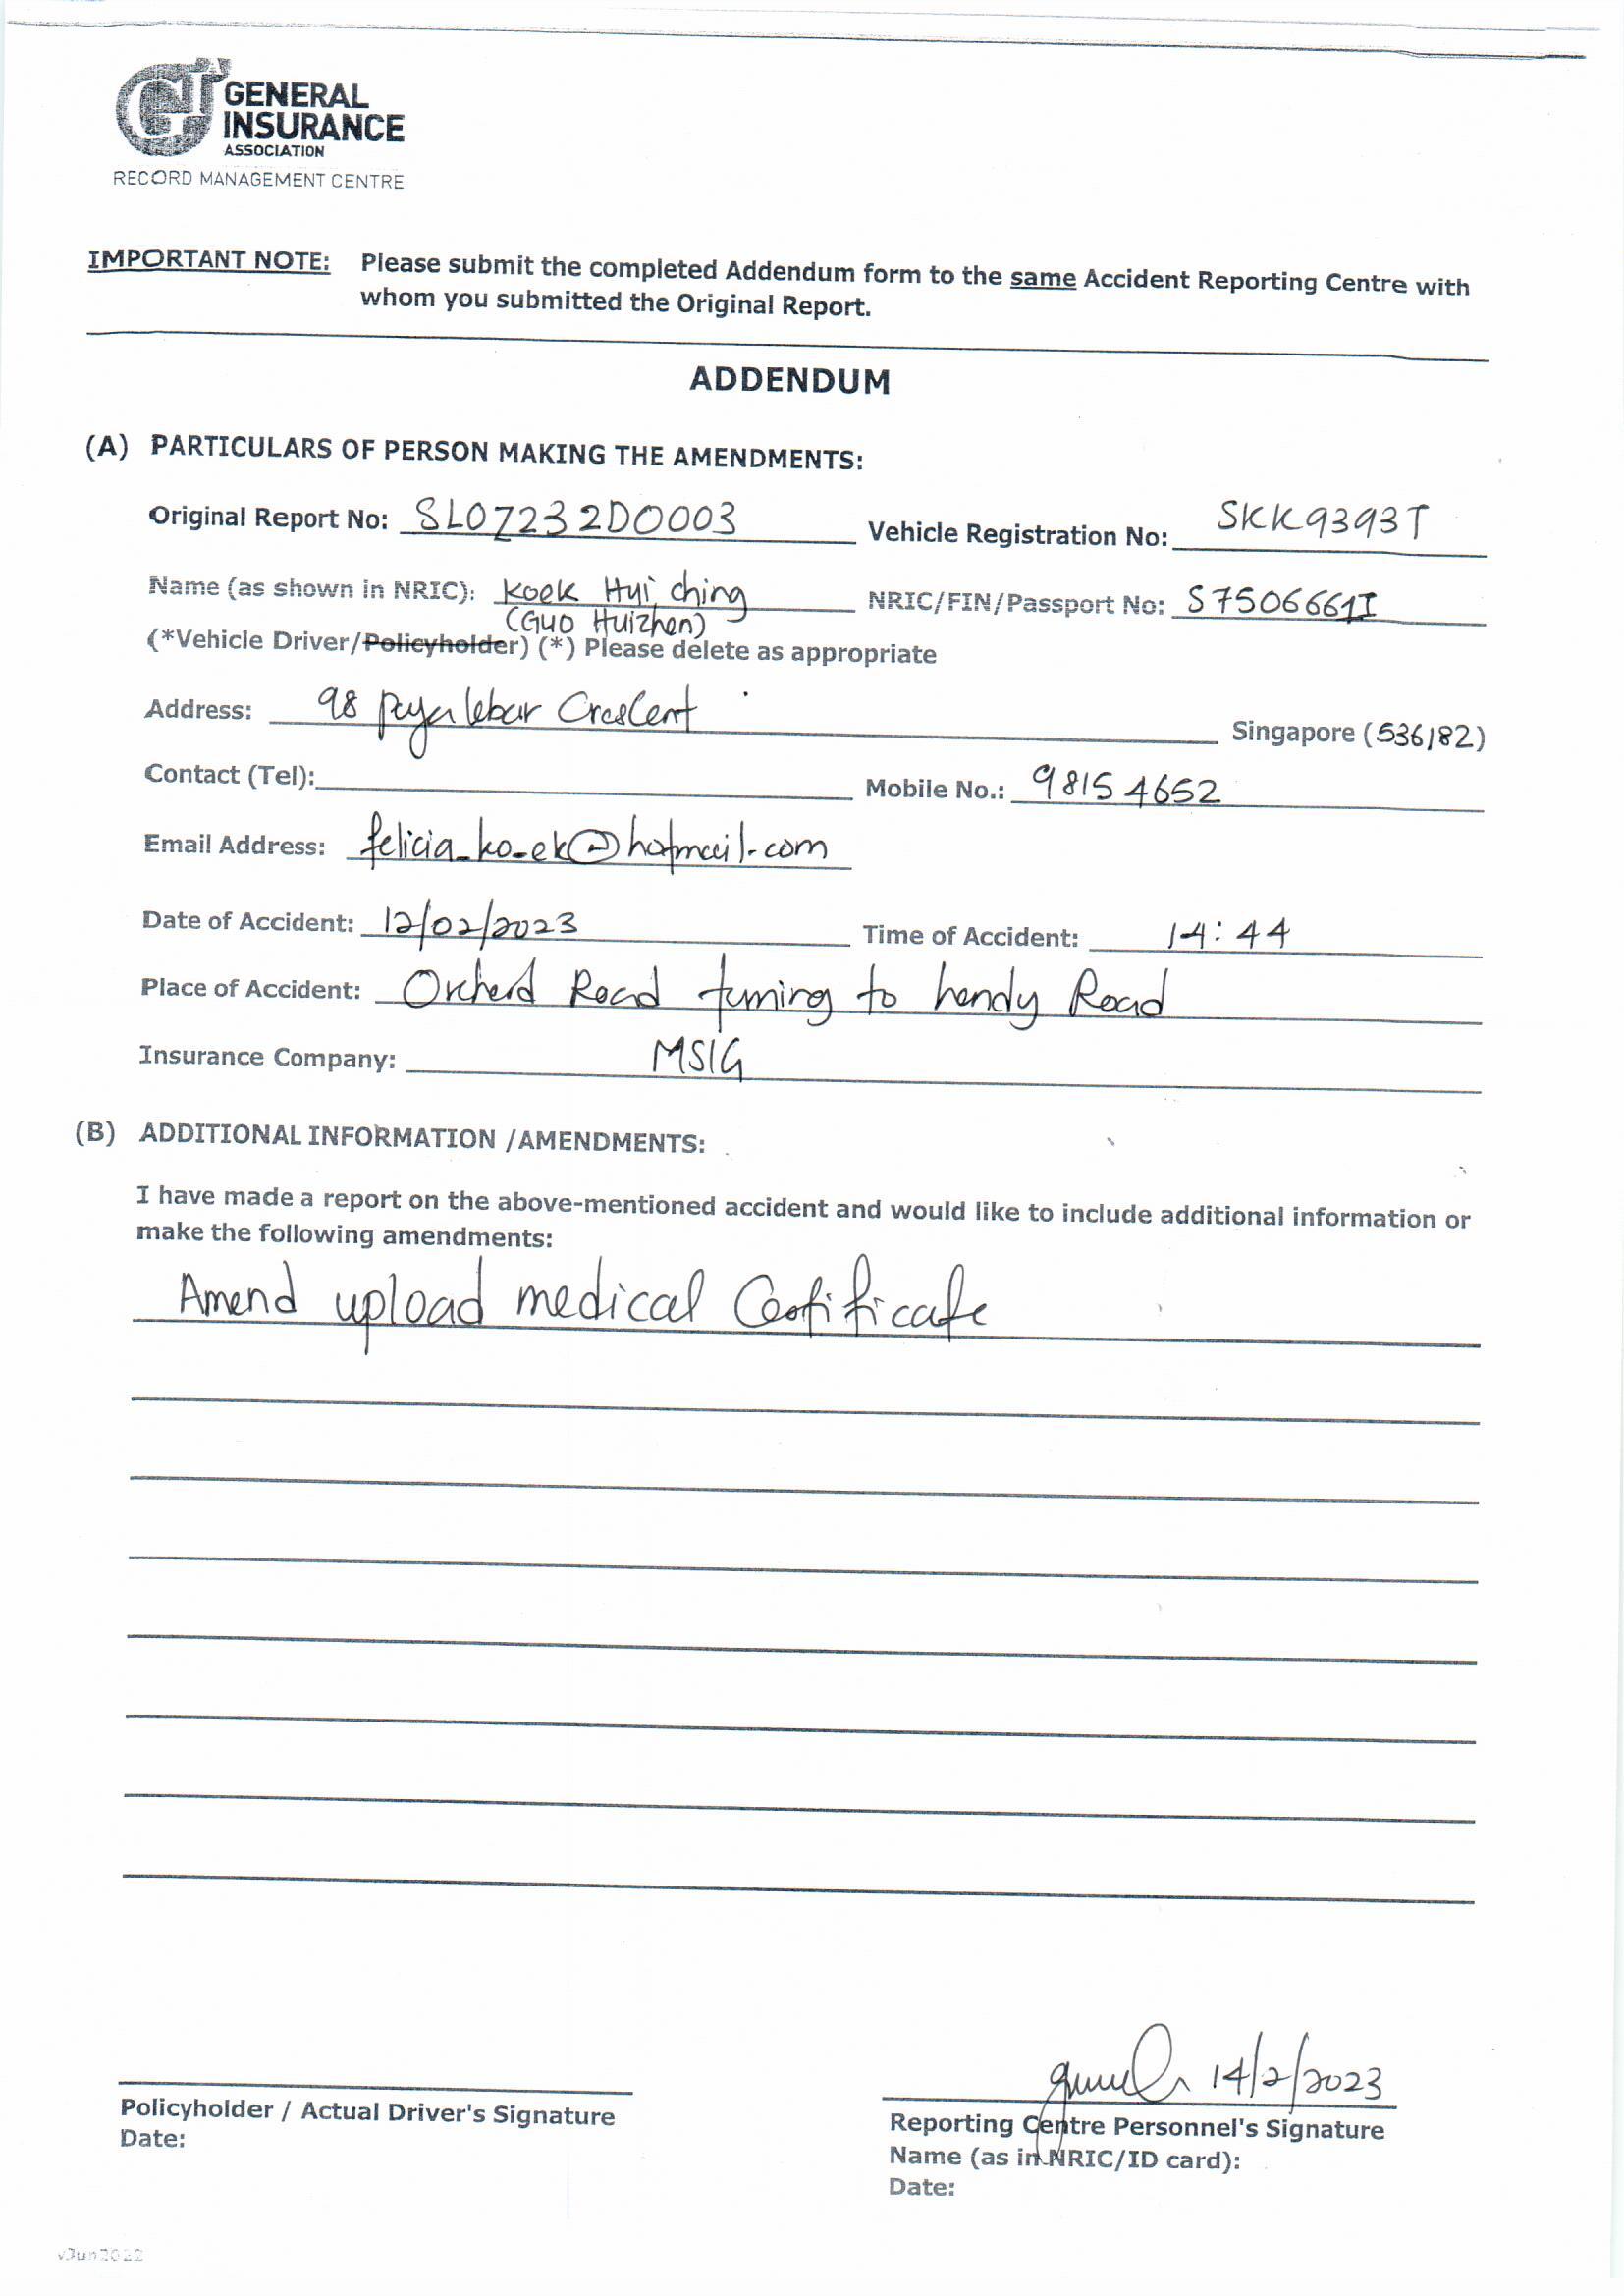 GIA GENERAL
INSURANCE
ASSOCIATION
RECORD MANAGEMENT CENTRE
IMPORTANT NOTE: Please submit the completed Addendum form to the same Accident Reporting Centre with
whom you submitted the Original Report.
ADDENDUM
(A) PARTICULARS OF PERSON MAKING THE AMENDMENTS:
Original Report No: SL07232D0003 Vehicle Registration No: SKK9393T
Name (as shown in NRIC): Koek Hui ching NRIC/FIN/Passport No: S7506661I
(Guo Huizhen)
(*Vehicle Driver/Policyholder) (*) Please delete as appropriate
Address: 98 payalebar Crescent Singapore (536182)
Contact (Tel): Mobile No.: 9815 4652
Email Address: felicia_ko_ek@hotmail.com
Date of Accident: 12/02/2023 Time of Accident: 14:44
Place of Accident: Orchard Road turning to handy Road
Insurance Company: MSIG
(B) ADDITIONAL INFORMATION /AMENDMENTS:
I have made a report on the above-mentioned accident and would like to include additional information or
make the following amendments:
Amend upload medical Certificate
14/2/2023
Policyholder / Actual Driver's Signature Reporting Centre Personnel's Signature
Date: Name (as in NRIC/ID card):
Date:
vJun2022